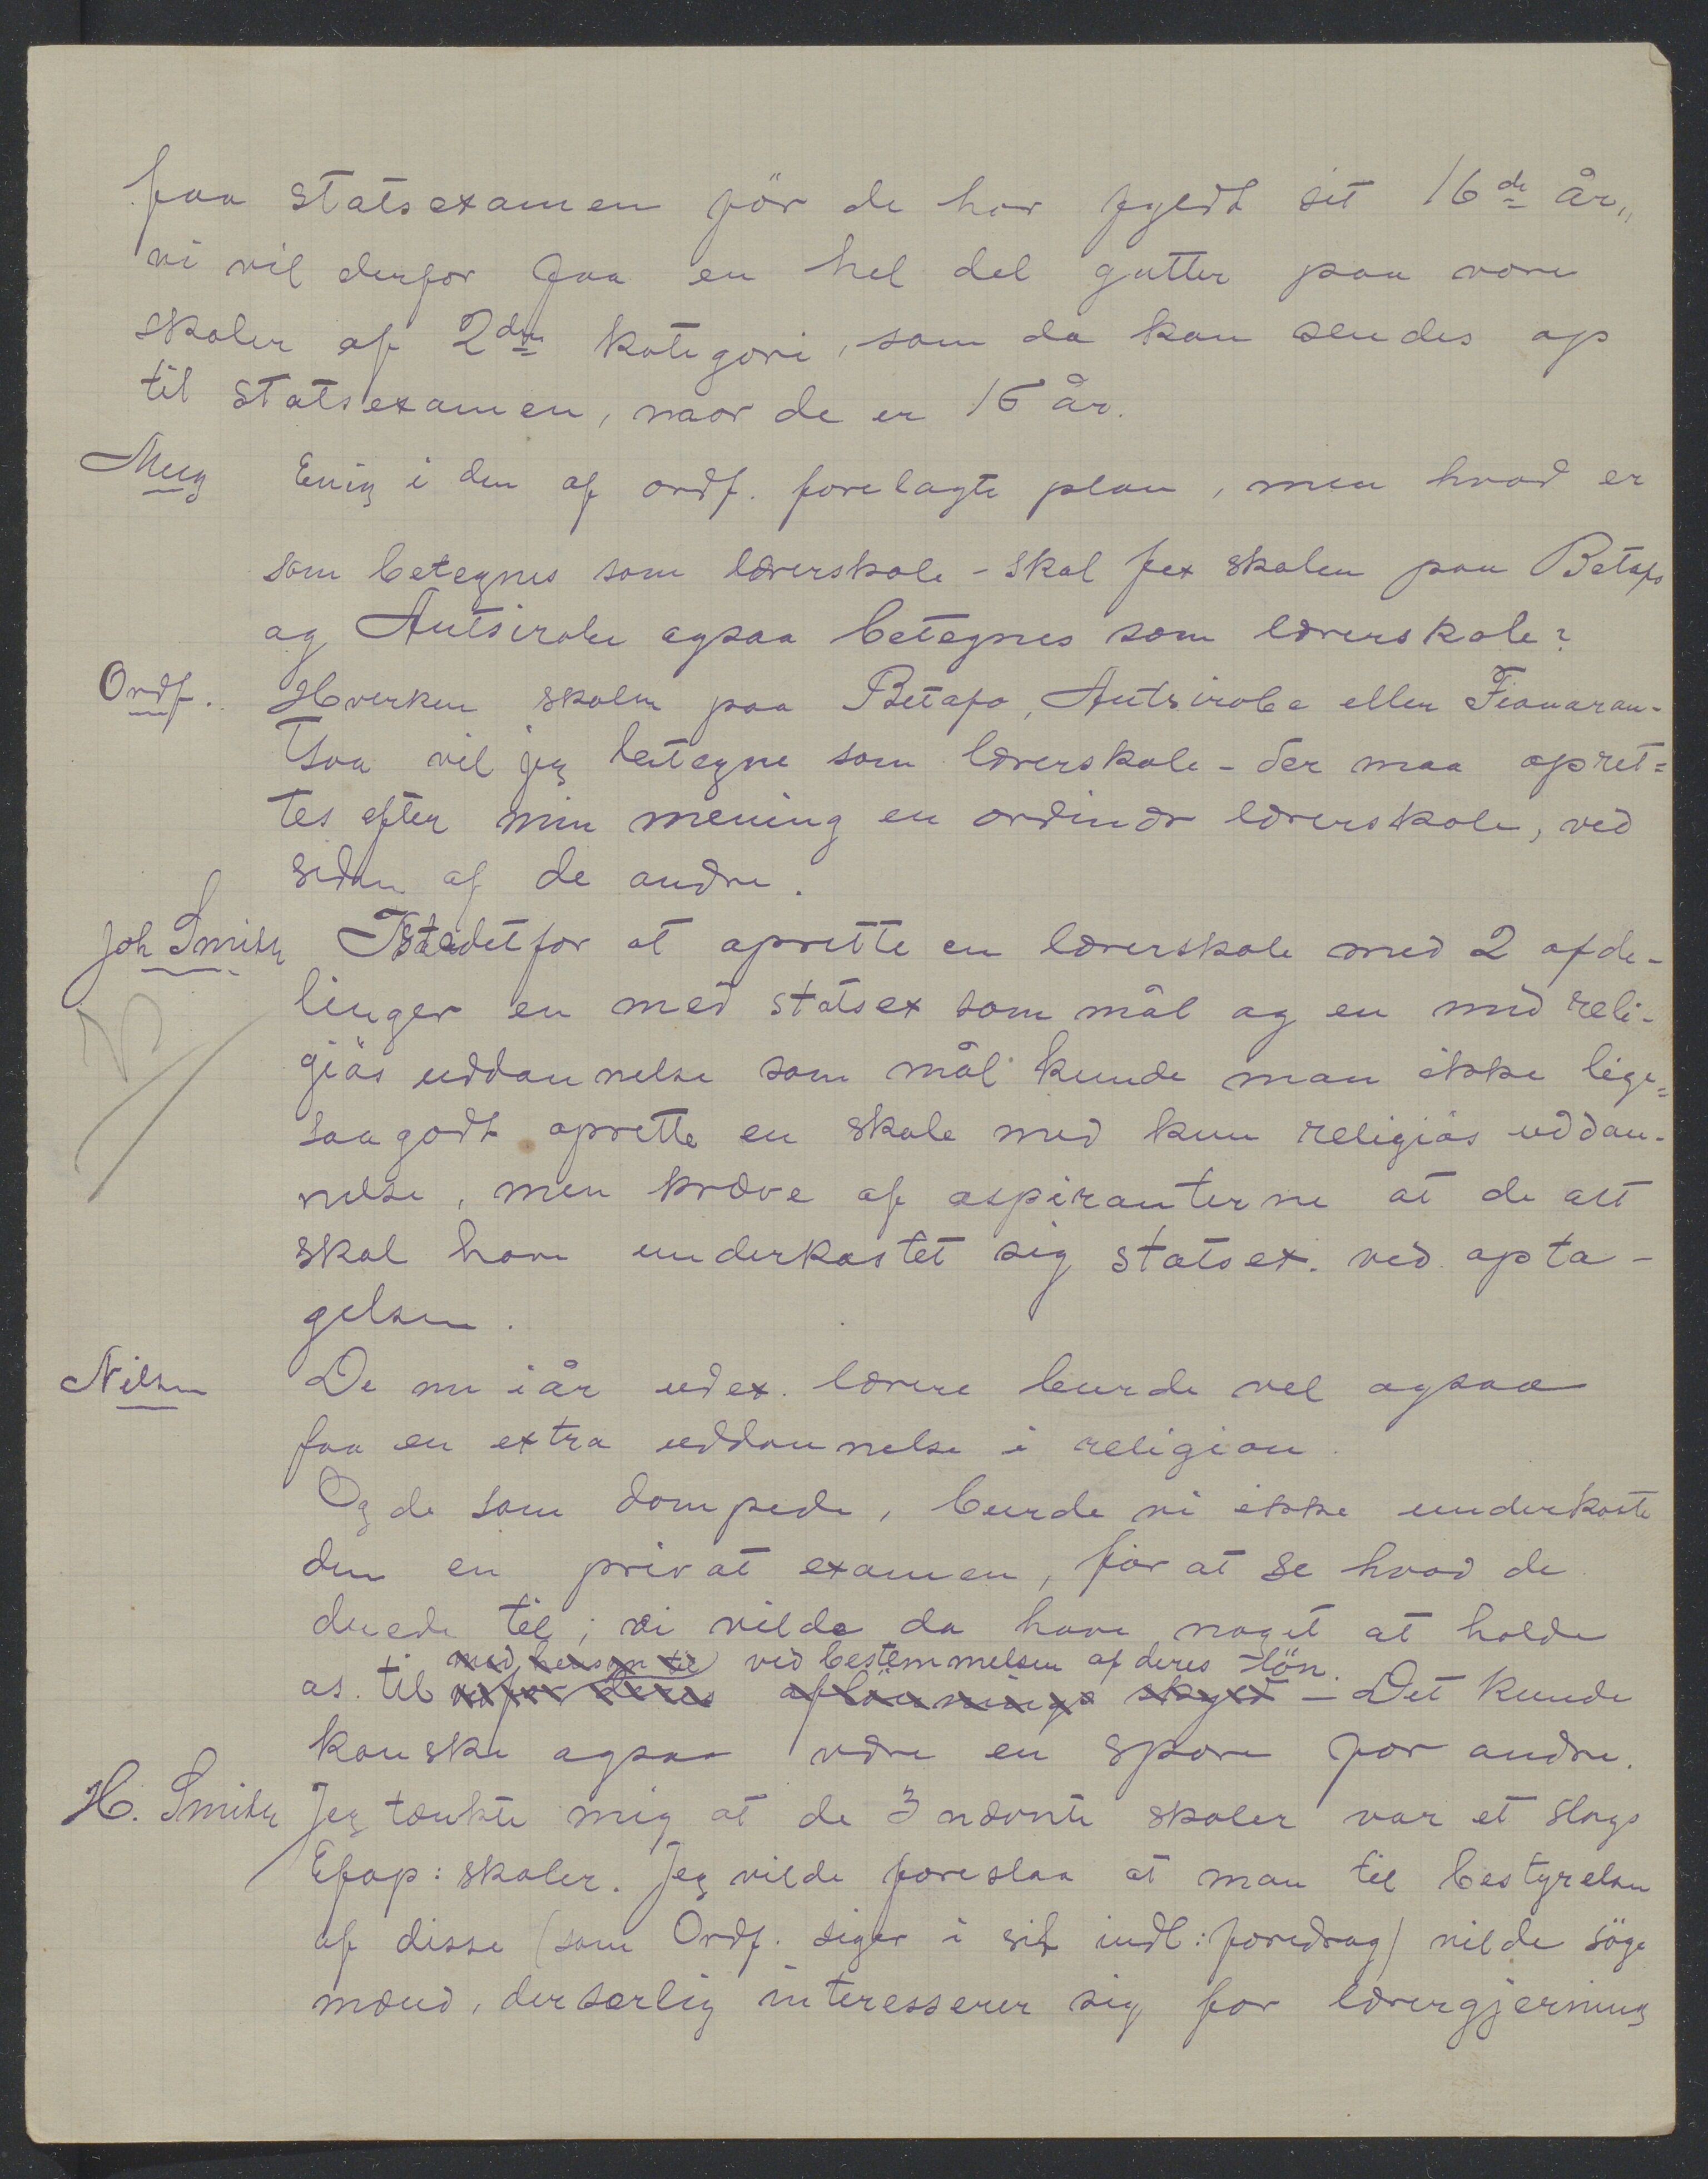 faa statsexamen för de har fyldt sit 16de år,,
vi vil derfor faa en hel del gutter paa vore
skoler af 2den kategori, som da kan sendes op
til statsexamen, naar de er 16 år.
Meeg Enig i den af ordf. forelagte plan, men hvad er
som betegnes som lærerskole - skal fex skolen paa Betafo
og Antsirabe ogsaa betegnes som lærerskole?
Ordf. Hverken skolen paa Betafo, Antsirabe eller Fianaran-
tsoa vil jeg betegne som lærerskole - der maa opret=
tes efter min mening en ordinær lærerskole, ved
siden af de andre.
Joh Smith Istedetfor at oprette en lærerskole med 2 afde-
linger en med statsex som mål og en med reli-
giös uddannelse som mål kunde man ikke lige=
saagodt oprette en skole med kun religiös uddan-
nelse, men kræve af aspiranterne at de alt
skal have underkastet sig statsex. ved opta-
gelsen.
Nilsen De nu iår udex. lærere burde vel ogsaa
faa en extra uddannelse i religion.
Og de som dompede, burde vi ikke underkaste
dem en privat examen, for at se hvad de
duede til; vi vilde da have noget at holde
med hensyn til ved bestemmelsen af deres lön.
os. til deres aflönnings - Det kunde
kanske ogsaa være en spore for andre.
H. Smith Jeg tænkte mig at de 3 nævnte skoler var et slags
Efop: skoler. Jeg vilde foreslaa at man til bestyrelsen
af disse (som Ordf. siger i sit indl: foredrag) vilde söge
mænd, der særlig interesserer sig for lærergjerning